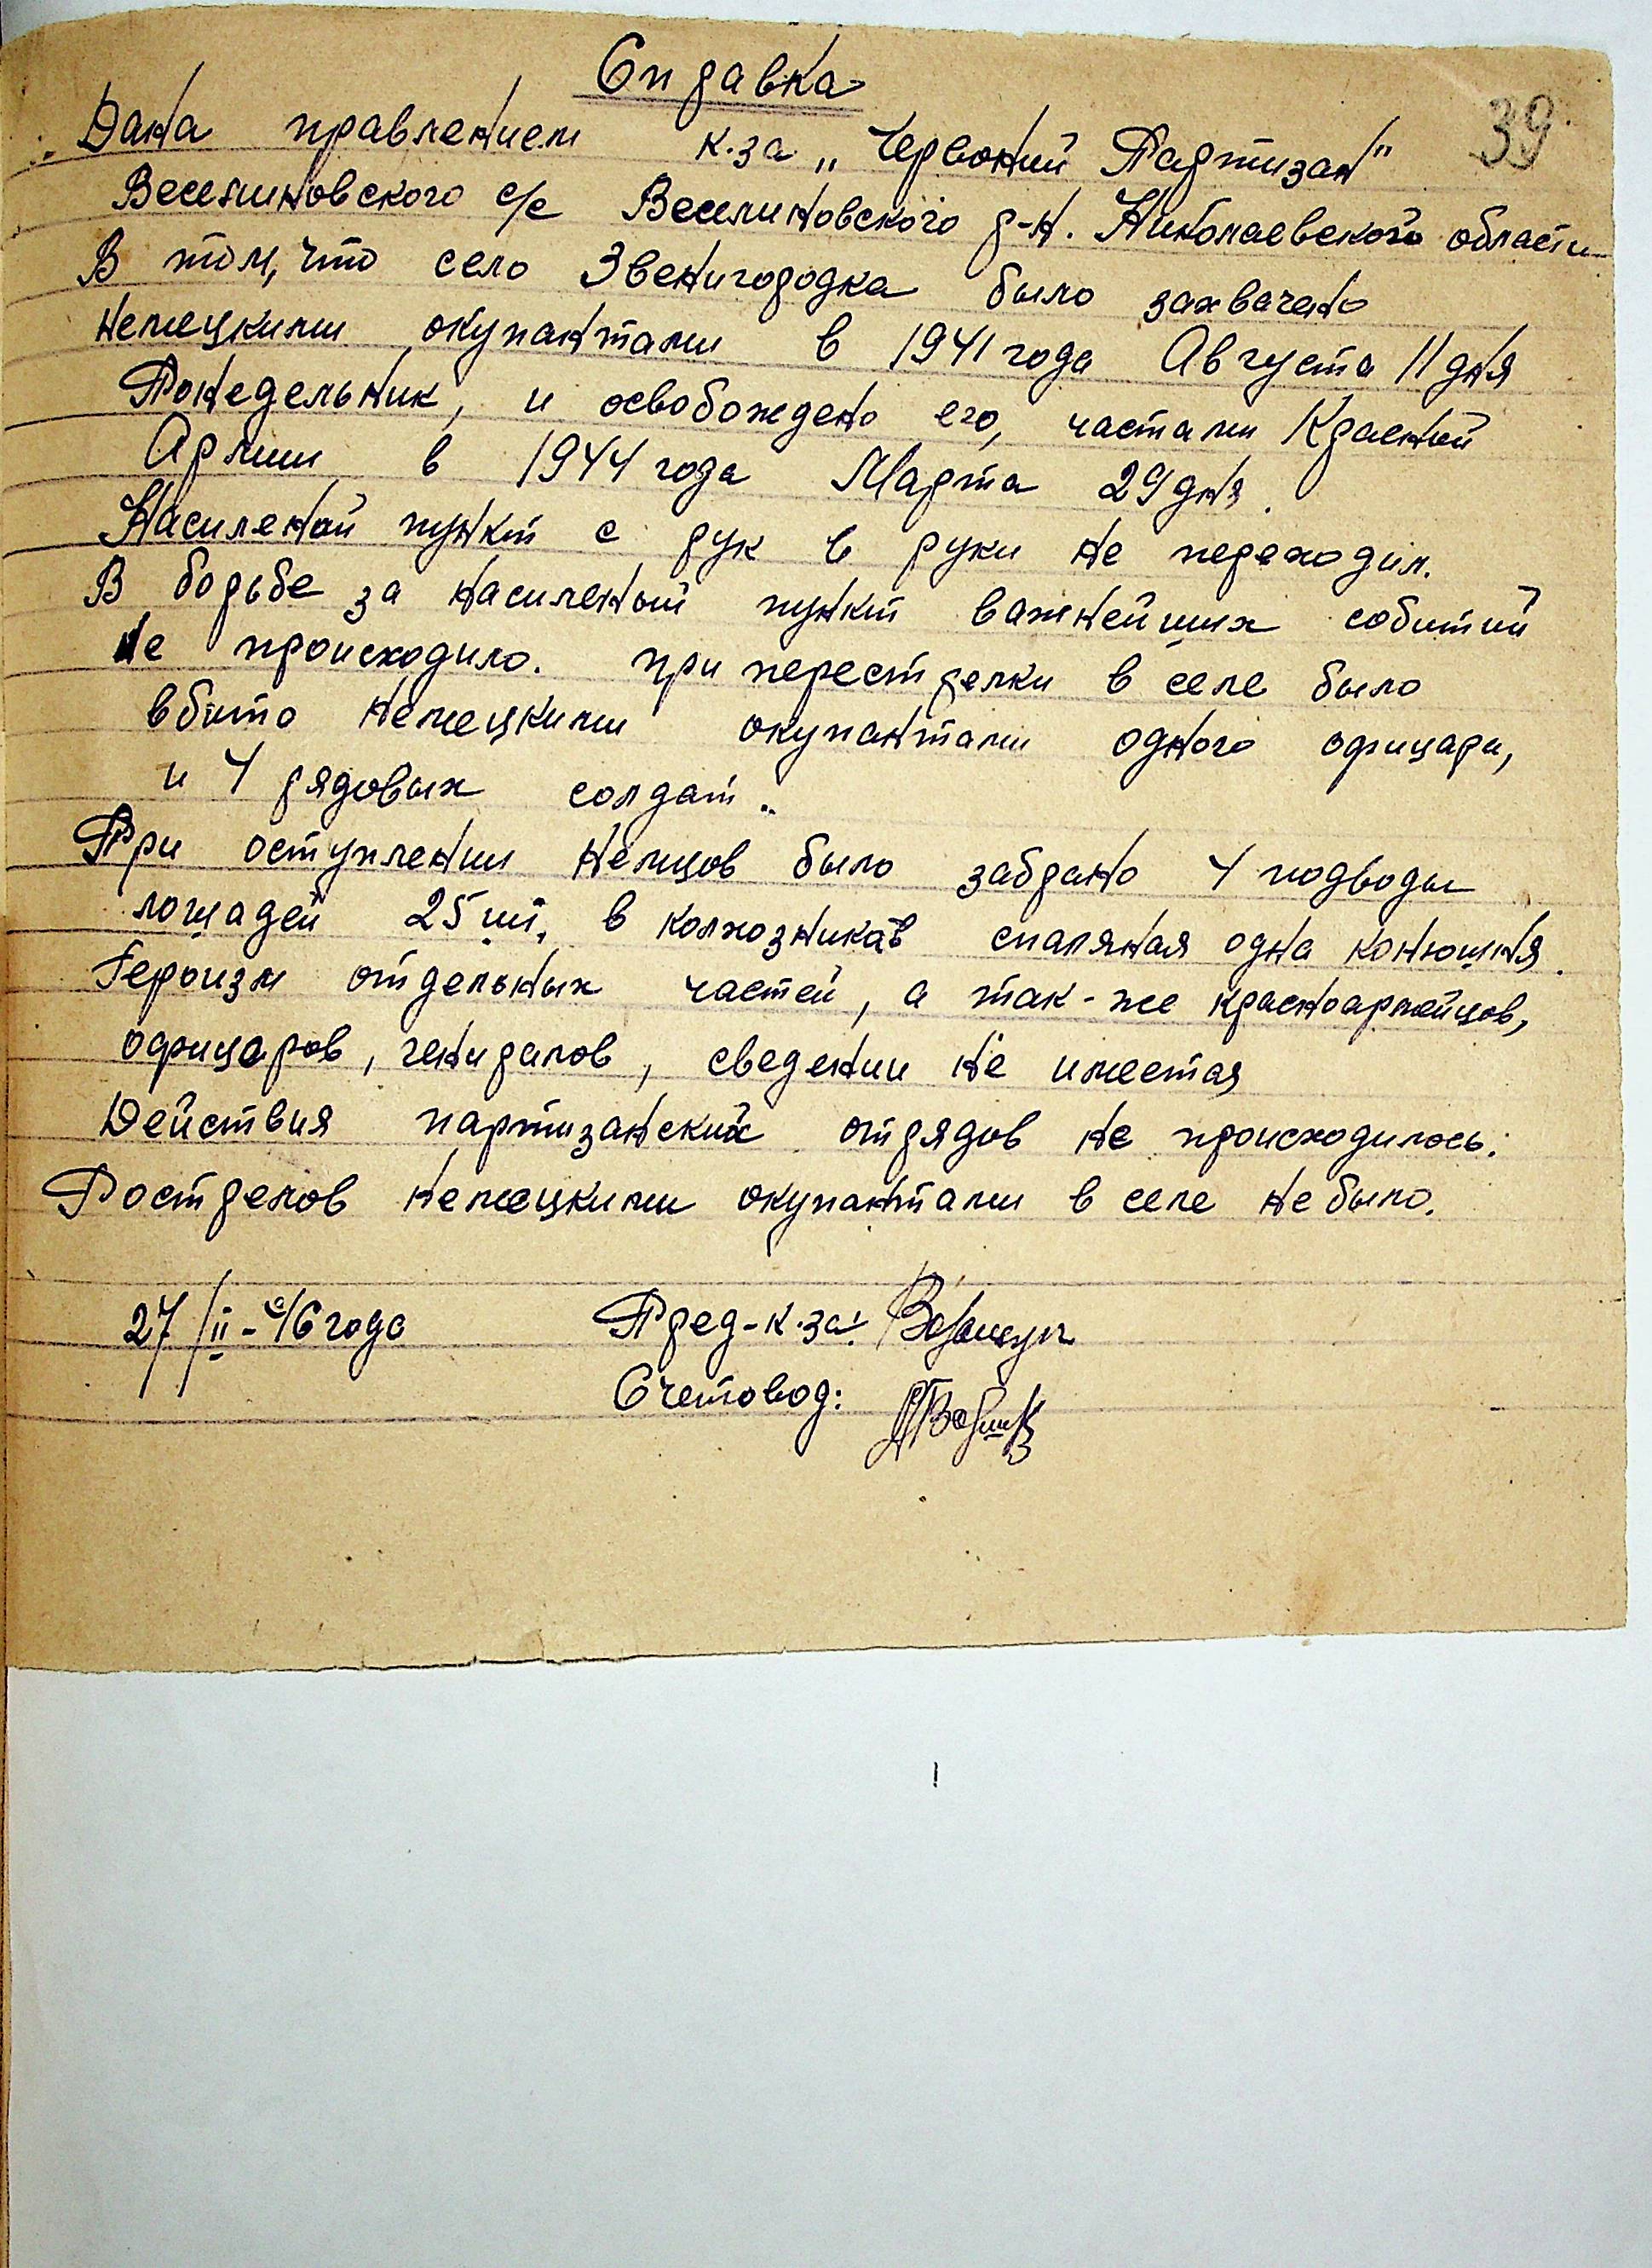 Справка
39
Дана правлением к.за „Червоний Партизан"
Веселиновского с/с Веселиновского р-н. Николаевского области
В том, что село Звенигородка было захвачено
немецкими окупантами в 1941 года Августа 11 дня
Понедельник, и освобождено его, частами Красный
Армии в 1944 года Марта 29 дня.
Насиленой пункт с рук в руки не переходил.
В борьбе за насиленый пункт важнейших событий
не происходило. при перестрелки в селе было
вбито немецкими окупантами одного офицара,
и 4 рядовых солдат.
При оступлении немцов было забрано 4 подводы
лошадей 25 шт, в колхозников спаляная одна конюшня.
Героизм отдельных частей, а так-же красноармейцов,
офицаров, генидалов, сведении не имеетая
Действия партизанских отрядов не происходилось.
Ростделов немецкими окупантами в селе не было.
27/II-46 года Пред-к.за:
Счетовод: